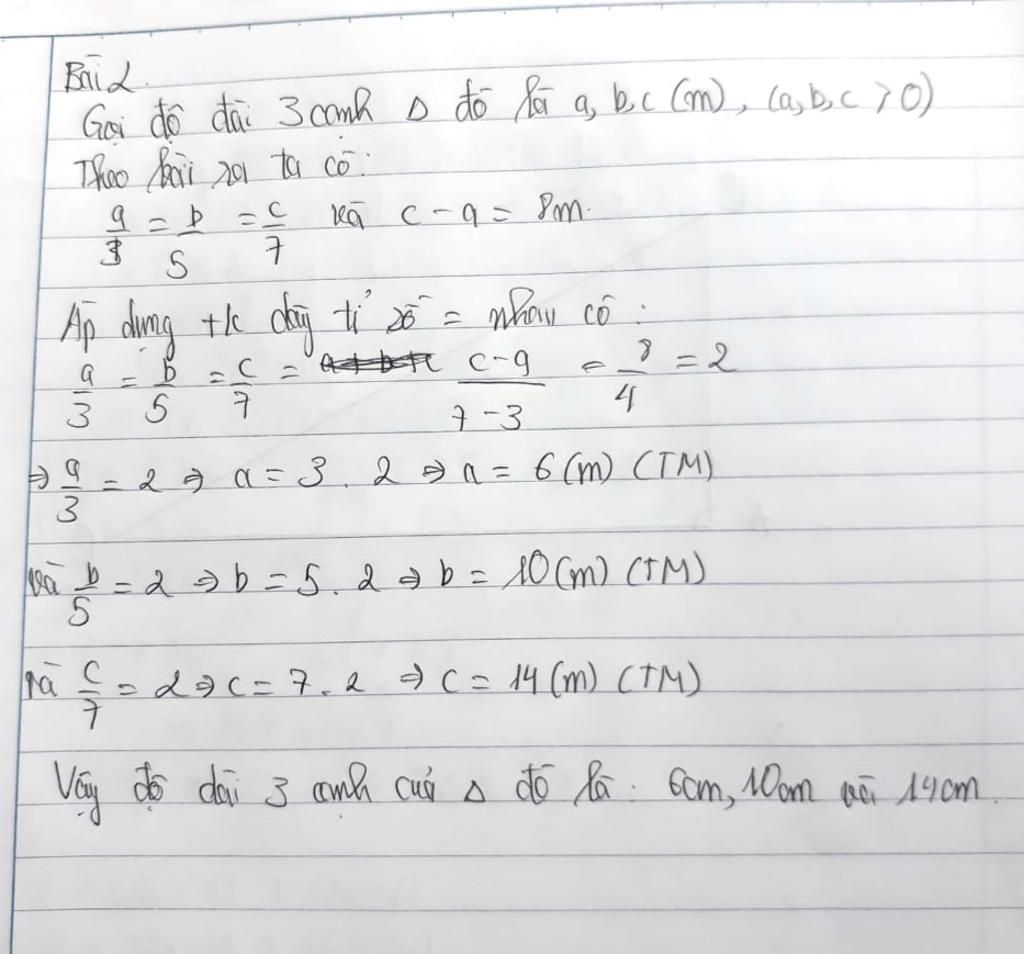 Bài 2.
Gọi độ dài 3 cạnh Δ đó là a, b, c (m), (a, b, c > 0)
Theo bài ra ta có:
a/3 = b/5 = c/7 và c - a = 8m.
Áp dụng t/c dãy tỉ số = nhau có:
a/3 = b/5 = c/7 = (c-a)/(7-3) = 8/4 = 2
⇒ a/3 = 2 ⇒ a = 3 . 2 ⇒ a = 6 (m) (TM)
và b/5 = 2 ⇒ b = 5 . 2 ⇒ b = 10 (m) (TM)
và c/7 = 2 ⇒ c = 7 . 2 ⇒ c = 14 (m) (TM)
Vậy độ dài 3 cạnh của Δ đó là: 6cm, 10cm và 14cm.